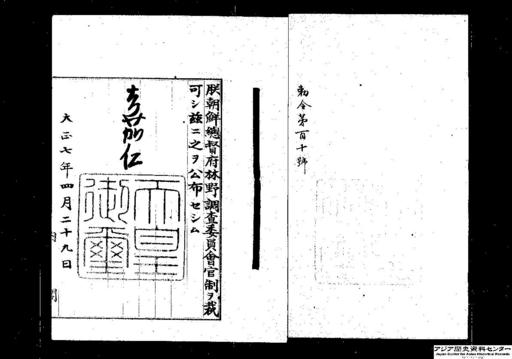 勅令第百十號
朕朝鮮總督府林野調査委員會官制ヲ裁
可シ茲ニ之ヲ公布セシム
嘉仁
天皇
御璽
大正七年四月二十九日
内閣
アジア歴史資料センター
Japan Center for Asian Historical Records